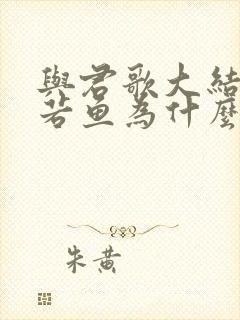 與君歌大結
若魚為什麼
朱黃